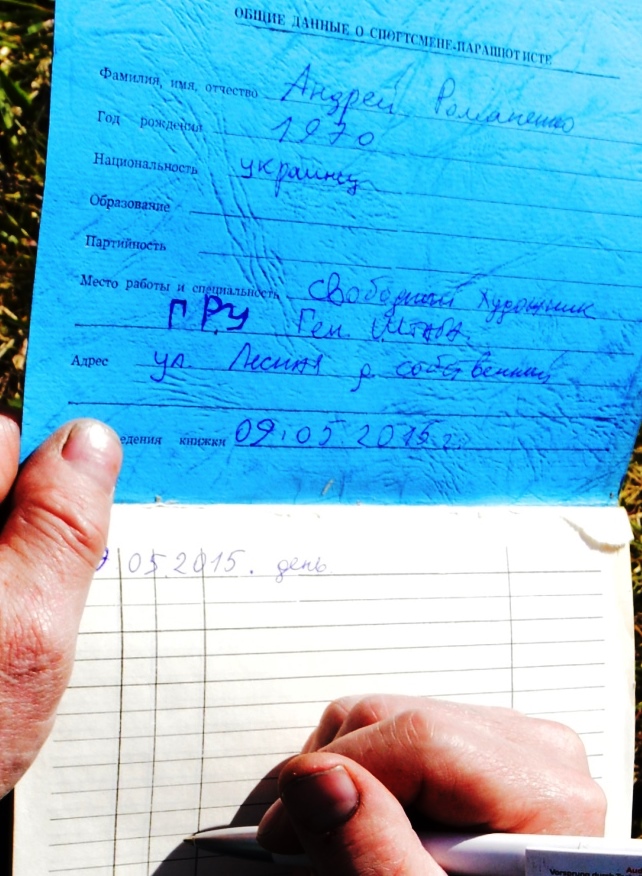 ОБЩИЕ ДАННЫЕ О СПОРТСМЕНЕ-ПАРАШЮТИСТЕ
Фамилия, имя, отчество Андрей Романенко
Год рождения 1970
Национальность украинец
Образование
Партийность
Место работы и специальность свободный художник
ГРУ Ген. Штаба.
Адрес ул. Лесная д. собственный
едения книжки 09.05.2015 г.
05.2015. день
Versorgung durch